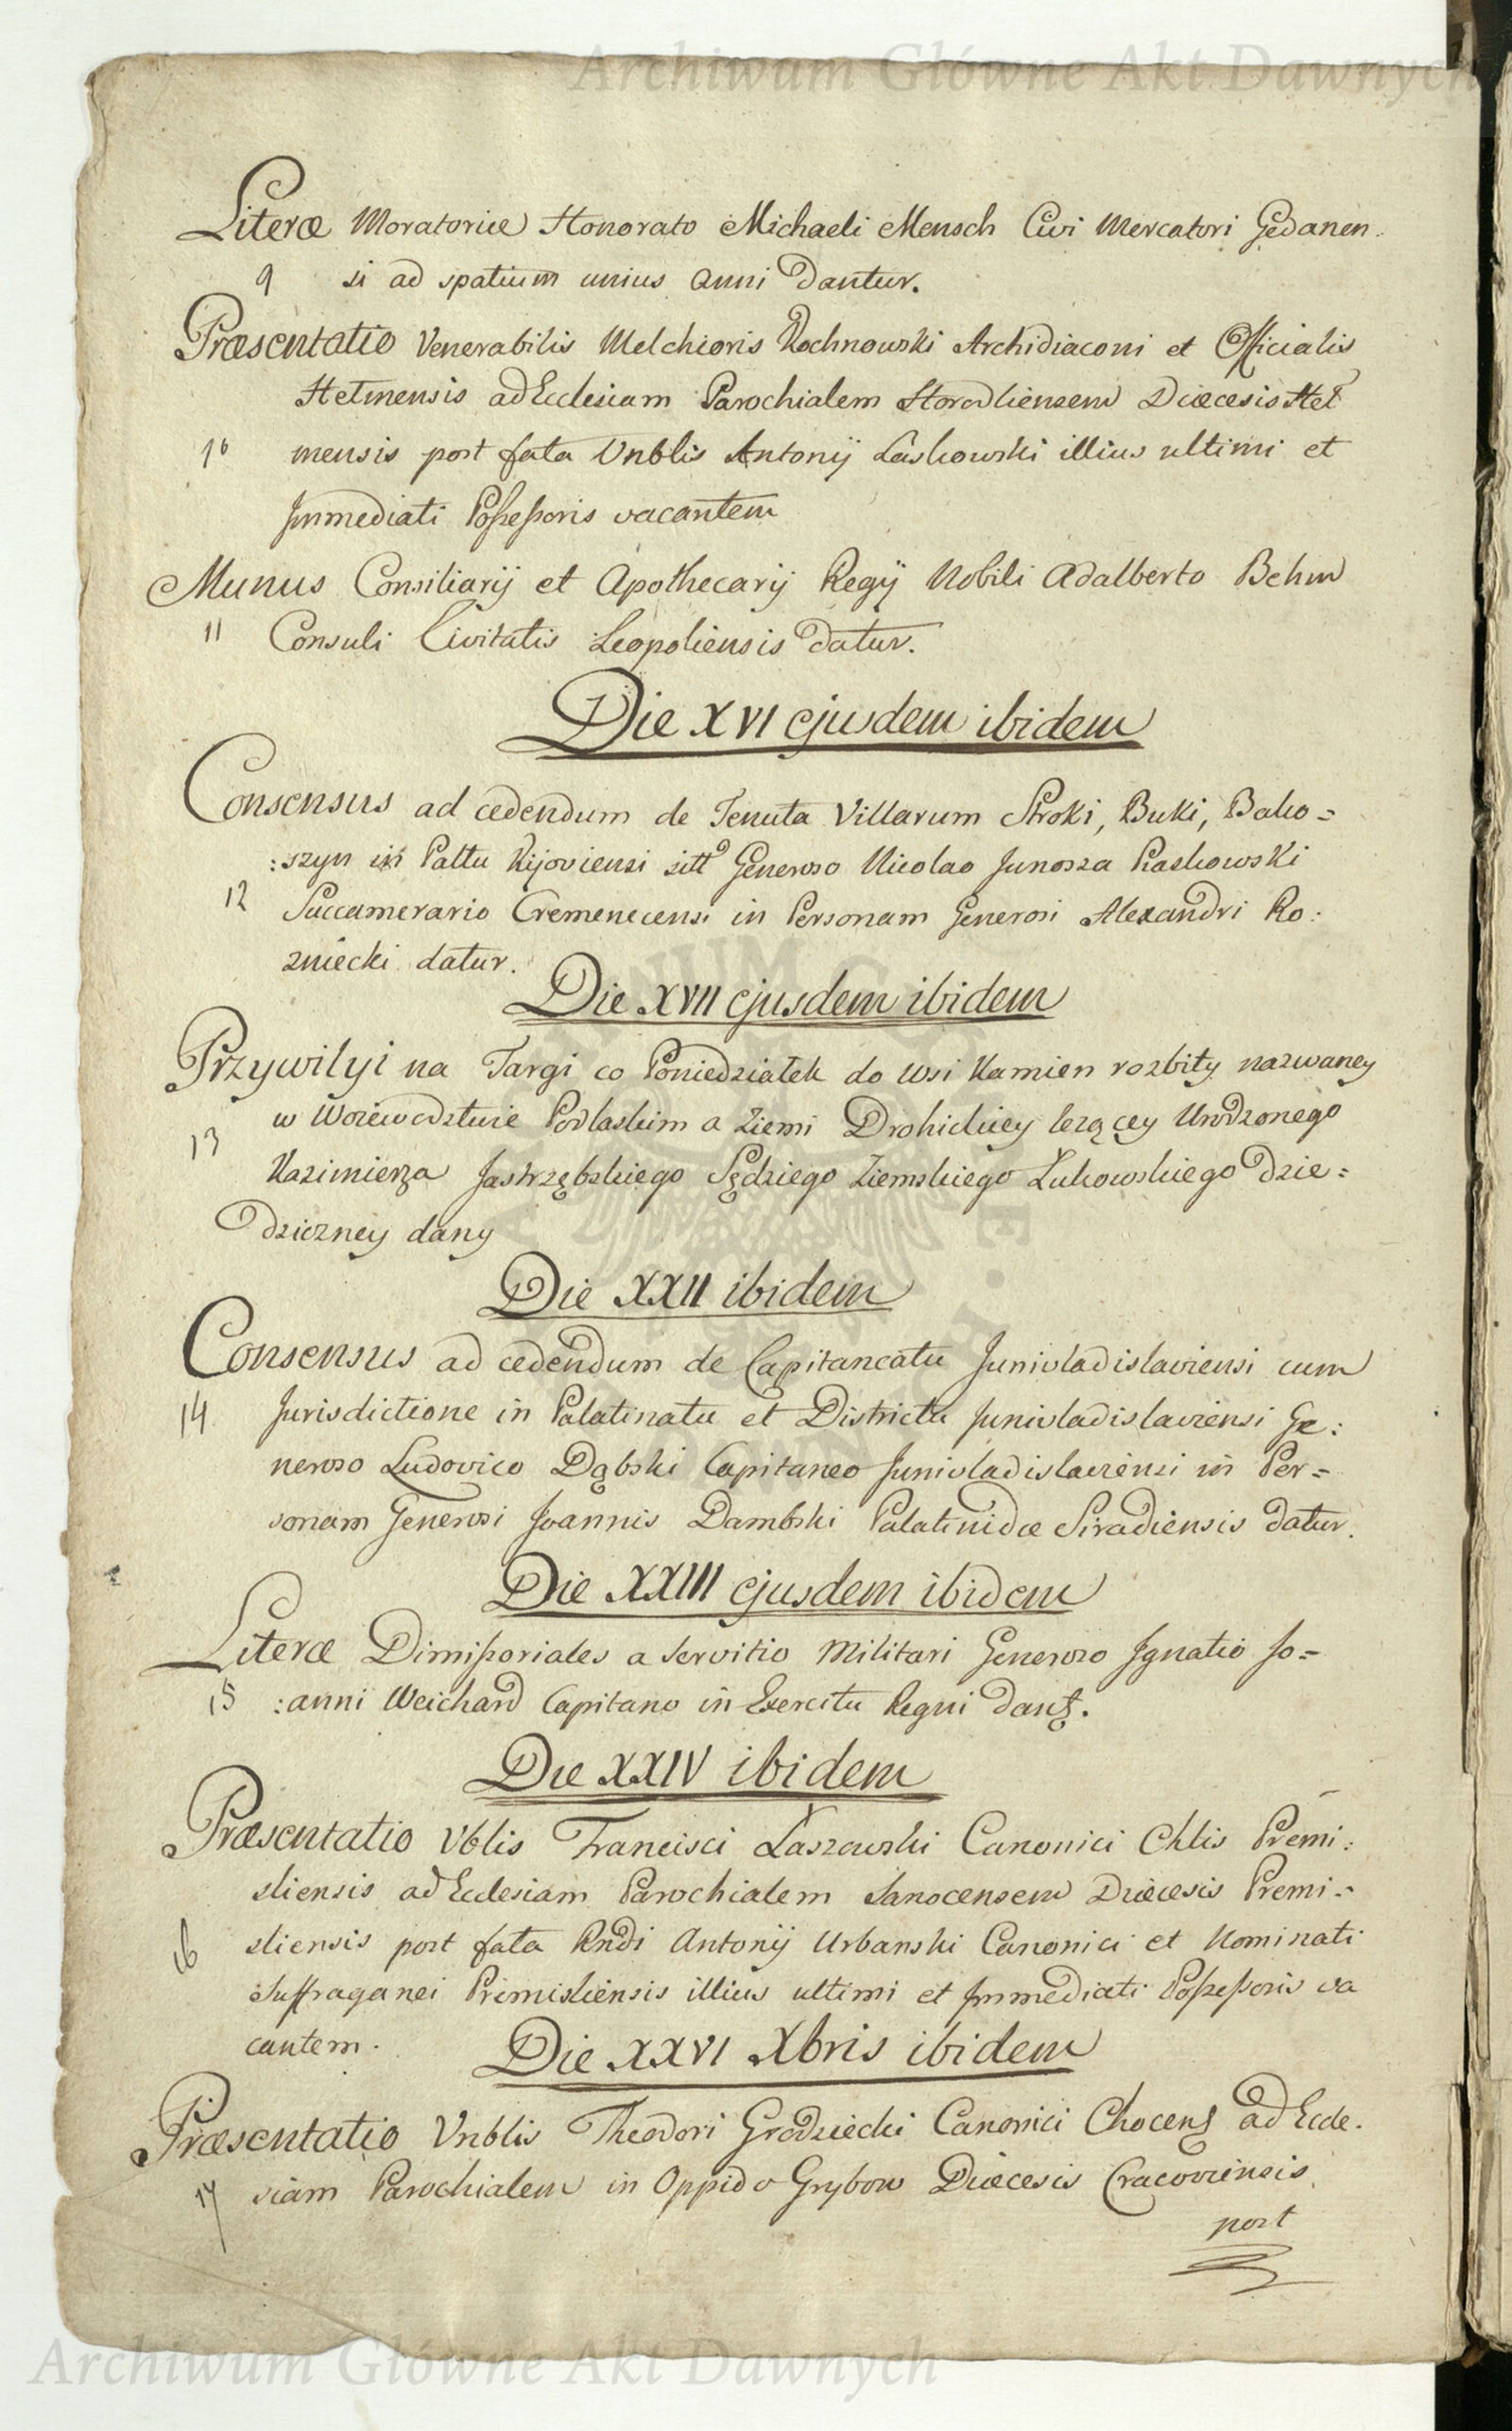 Archiwum Główne Akt Dawnych
Literæ Moratoriæ Honorato Michaeli Mensch Civi Mercatori Gedanen
9 si ad spatium unius anni dantur.
Præsentatio Venerabilis Melchioris Kochnowski Archidiaconi et Officialis
Helmensis ad Ecclesiam Parochialem Horodliensem Diœcesis Hel
10 mensis post fata Vnblis Antonij Laskowski illius ultimi et
Immediati Possessoris vacantem
Munus Consiliarij et Apothecarij Regij Nobili Adalberto Behm
11 Consuli Civitatis Leopoliensis datur.
Die XVI ejusdem ibidem
Consensus ad cedendum de Tenuta Villarum Stroki, Buki, Bako=
:szyn in Palttu Kijoviensi sitt° Generoso Nicolao Junosza Piaskowski
12 Succamerario Cremenecensi in Personam Generosi Alexandri Ro:
zniecki datur.
Die XVII ejusdem ibidem
Przywilyi na Targi co Poniedziałek do wsi Kamien rozbity nazwaney
w Woiewodztwie Podlaskim a Ziemi Drohickiey lezącey Urodzonego
13 Kazimierza Jastrzębskiego Sędziego Ziemskiego Łukowskiego dzie=
dziczney dany
Die XXII ibidem
Consensus ad cedendum de Capitaneatu Junivladislaviensi cum
14 Jurisdictione in Palatinatu et Districtu Junivladislaviensi Ge:
neroso Ludovico Dąbski Capitaneo Junivladislaviensi in Per=
sonam Generosi Joannis Dambski Palatinidæ Siradiensis datur.
Die XXIII ejusdem ibidem
Literæ Dimissoriales a servitio Militari Generoso Ignatio Jo=
15 :anni Weichard Capitano in Exercitu Regni dant.
Die XXIV ibidem
Præsentatio Vblis Francisci Łaszewski Canonici Chlis Premi:
sliensis ad Ecclesiam Parochialem Sanocensem Diœcesis Premi=
16 sliensis post fata Rndi Antonij Urbanski Canonici et Nominati
Suffraganei Premisliensis illius ultimi et Immediati Possessoris va
cantem.
Die XXVI Xbris ibidem
Præsentatio Vnblis Theodori Grodziecki Canonici Chocens ad Eccle.
17 siam Parochialem in Oppido Grybow Diœcesis Cracoviensis
post
Archiwum Główne Akt Dawnych